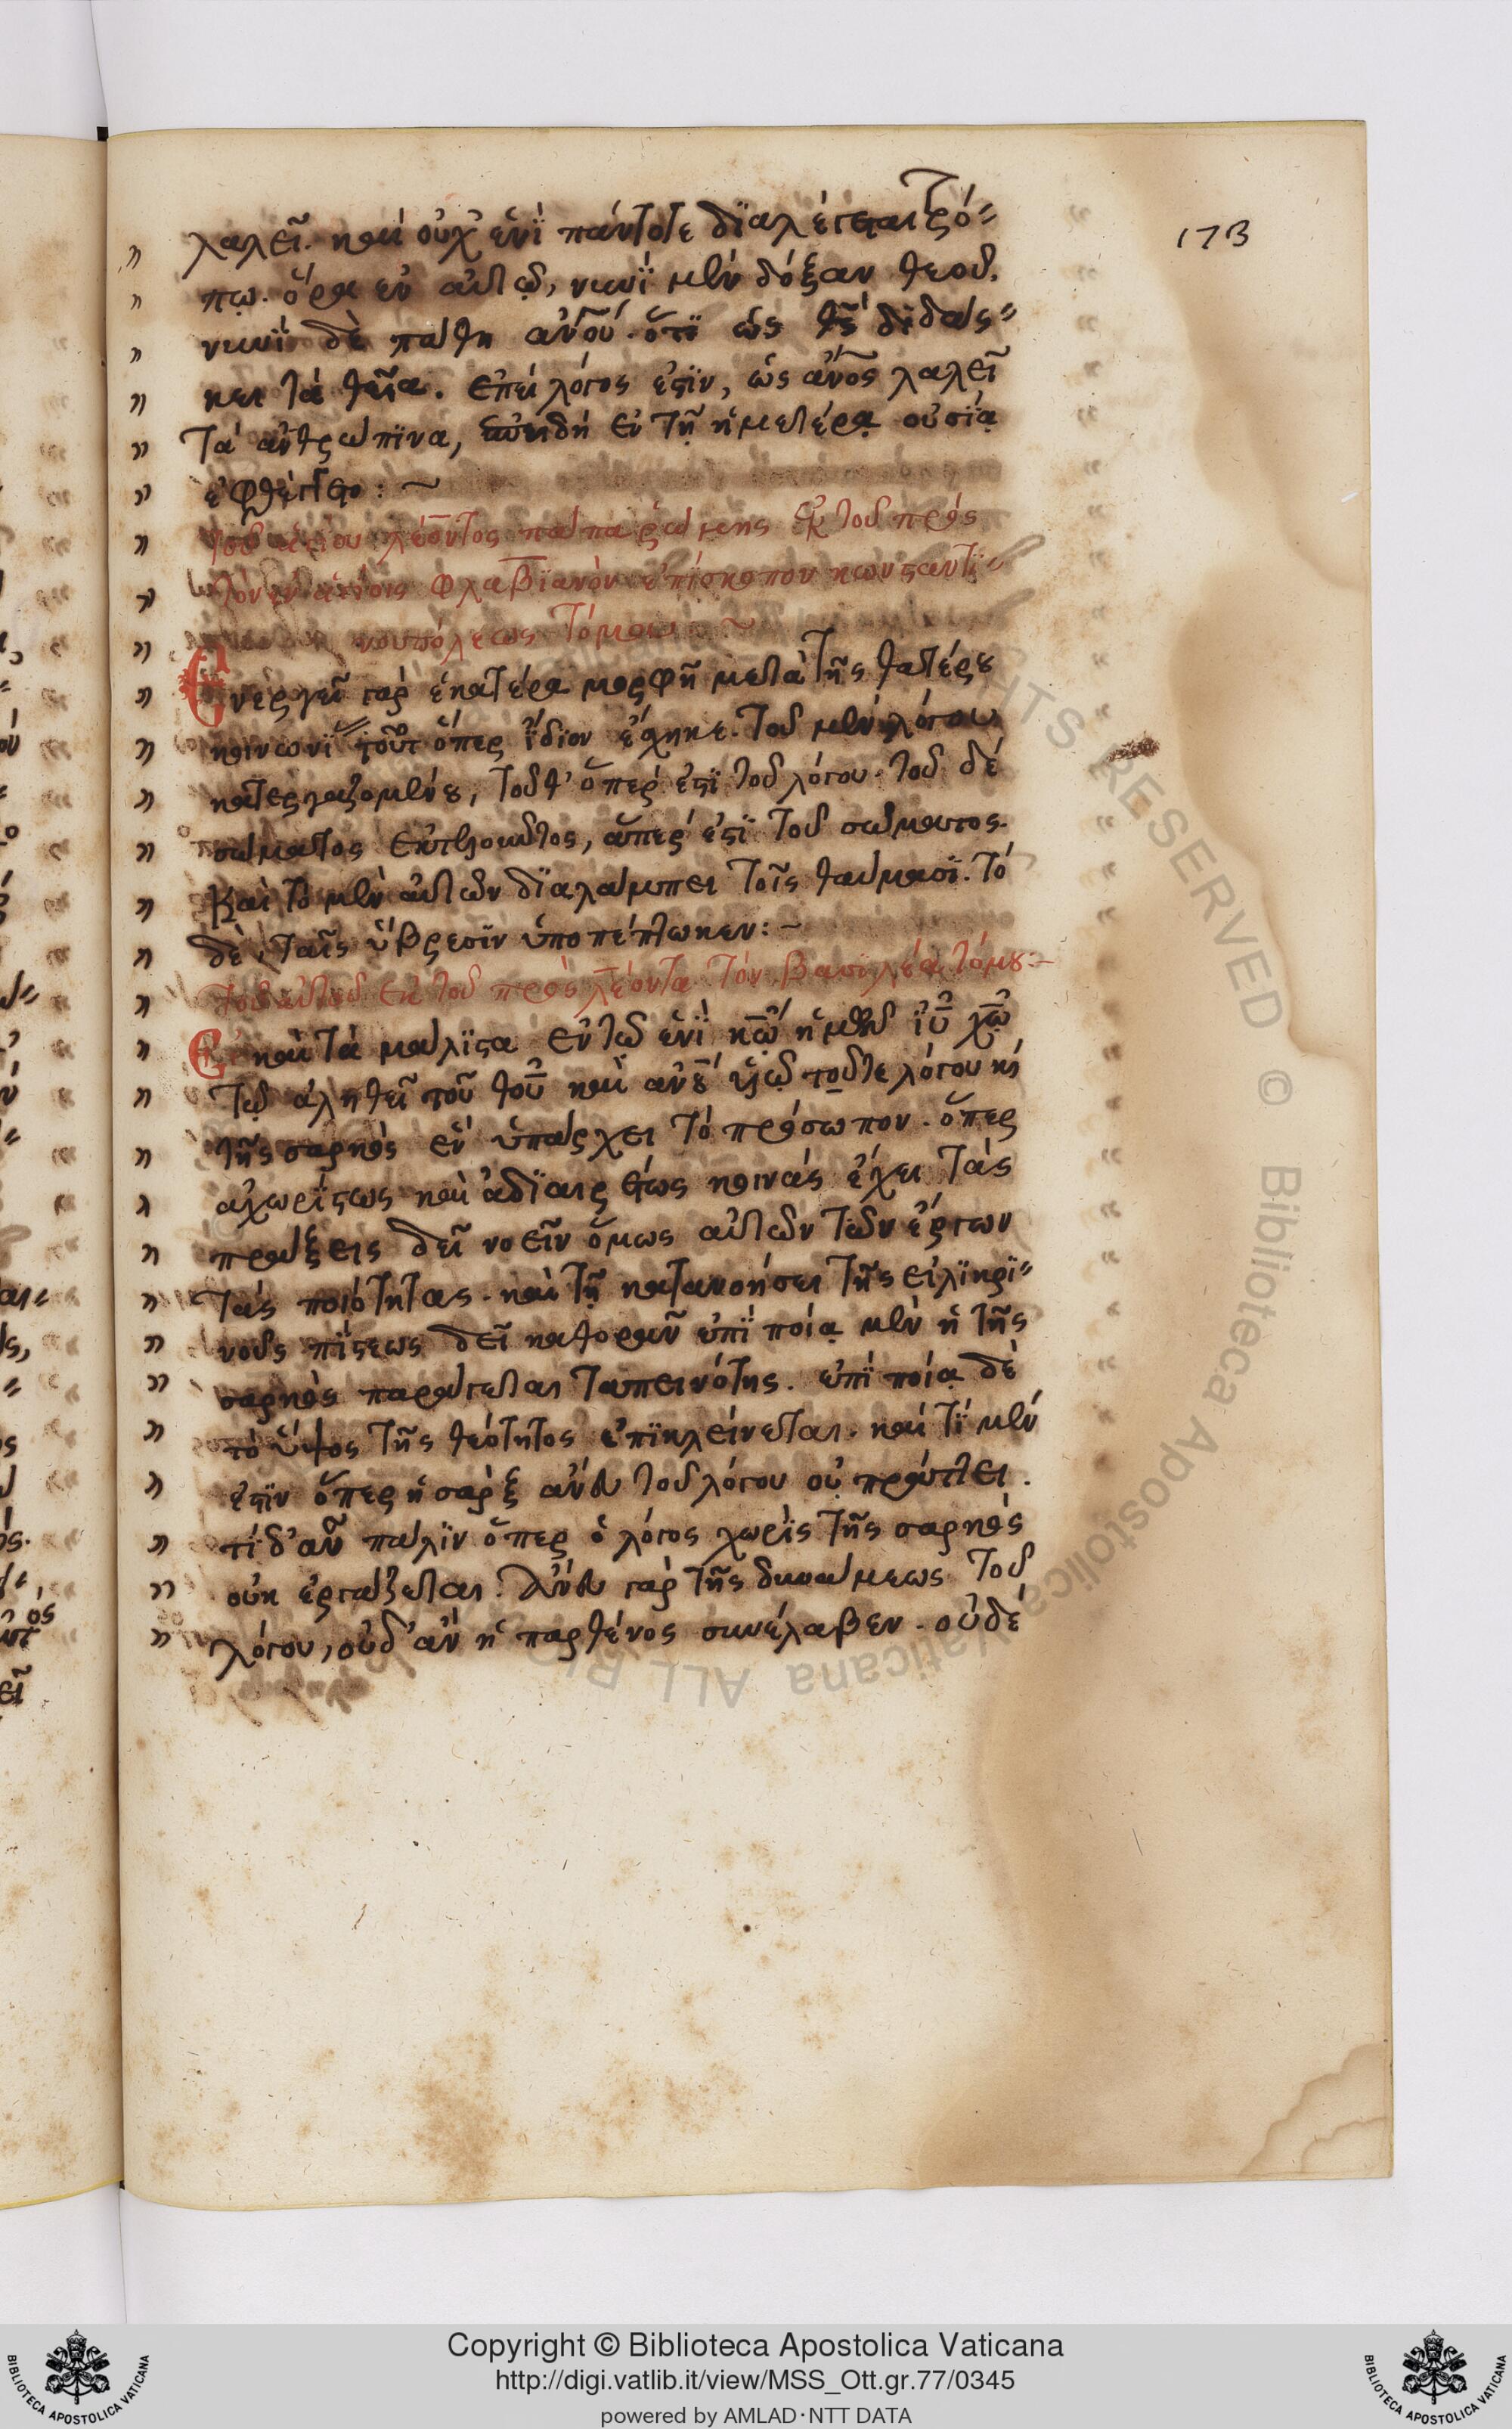 173
λαλεῖ. καὶ οὐχ ἑνῒ πάντοτε δϊαλέγεται τρό-
πῳ. ὅρα ἐν αὐτῷ, νυνῒ μὲν δόξαν θεοῦ.
νυνῒ δὲ πάθη ἀν̅ου. ὅτϊ ὡς θς̅ διδάς-
κει τὰ θεῖα. ἐπεὶ λόγος ἐστϊν, ὡς ἀν̅ος λαλεῖ
τὰ ἀνθρώπϊνα, ἐν τῇ ἡμετέρᾳ οὐσίᾳ
ἐφθέγγετο: ~
τοῦ ἁγίου λέοντος πάπα ῥώμης ἐκ τοῦ πρὸς
τὸν ἐν ἁγίοις φλαβϊανὸν ἐπίσκοπον κωνσταντϊ-
νουπόλεως τόμου: ~
Ἐνεργεῖ γὰρ ἑκατέρα μορφῇ μετὰ τῆς θατέρου
κοινωνϊ τοῦτ ὅπερ ἴδϊον ἔσχηκε. τοῦ μὲν λόγου
κατεργαζομένου, τοῦθ' ὅπερ ἐστϊ τοῦ λόγου. τοῦ δὲ
σώματος ἐκτελοῦντος, ἅπερ ἐστϊ τοῦ σώματος.
Καὶ τὸ μὲν αὐτῶν δϊαλάμπει τοῖς θαύμασϊ. τὸ
δὲ, ταῖς ὕβρεσϊν ὑποπέπτωκεν: ~
τοῦ αὐτοῦ ἐκ τοῦ πρὸς λέοντα τὸν βασϊλέα τόμου:~
Εἰ καὶ τὰ μάλϊστα ἐν τῷ ἑνὶ κ̅ω ἡμῶν ἰ̅υ χ̅ω
τῷ ἀληθεῖ τοῦ θ̅υ καὶ ἀν̅ου υἱῷ τοῦτε λόγου κὶ
τῆς σαρκὸς ἓν ὑπάρχει τὸ πρόσωπον. ὅπερ
ἀχωρίστως καὶ ἀδϊαιρέτως κοινὰς ἔχει τὰς
πράξεις δεῖ νοεῖν ὅμως αὐτῶν τῶν ἔργων
τὰς ποιότητας. καὶ τῇ κατανοήσει τῆς εἰλϊκρϊ-
νοῦς πίστεως δεῖ καθορᾶν ἐπϊ ποίᾳ μὲν ἡ τῆς
σαρκὸς παράγεται ταπεινότης. ἐπϊ ποίᾳ δὲ
τὸ ὕψος τῆς θεότητος ἐπϊκλείνεται. καὶ τί μέν
ἐστϊν ὅπερ ἡ σὰρξ ἄνευ τοῦ λόγου οὐ πράττει.
τί δ' αὖ πάλϊν ὅπερ ὁ λόγος χωρὶς τῆς σαρκὸς
οὐκ ἐργάζεται. Ἄνευ γὰρ τῆς δυνάμεως τοῦ
λόγου, οὐδ' ἂν ἡ παρθένος συνέλαβεν. οὐδὲ
Copyright © Biblioteca Apostolica Vaticana
http://digi.vatlib.it/view/MSS_Ott.gr.77/0345
powered by AMLAD·NTT DATA